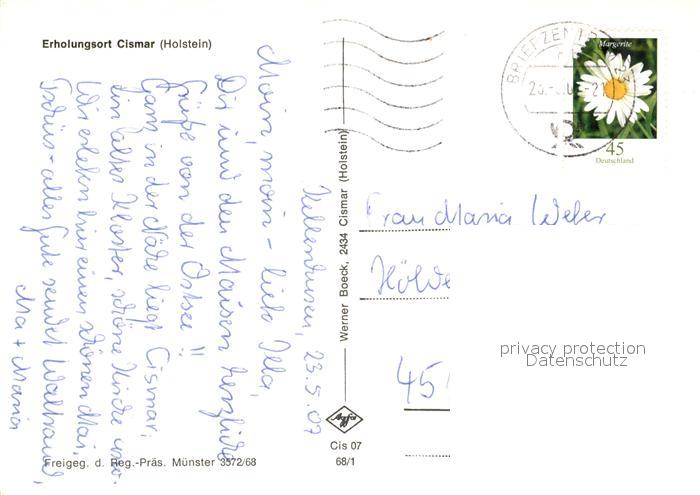 Erholungsort Cismar (Holstein)
Kellenhusen, 23.5.07
Moin, moin - liebe Ilka,
Dir und den Mäusen herzliche
Grüße von der Ostsee!!
Ganz in der Nähe liegt Cismar,
ein altes Kloster, schöne Kirche usw.
Wir erleben hier einen schönen Mai.
Tschüs - alles Gute sendet Waltraud,
Ma + Maria
Freigeg. d. Reg.-Präs. Münster 3572/68
Werner Boeck, 2434 Cismar (Holstein)
Agfa
Cis 07
68/1
BRIEFZENTRUM
Margerite
45
Deutschland
Frau Maria Weber
Hölde
45
privacy protection
Datenschutz